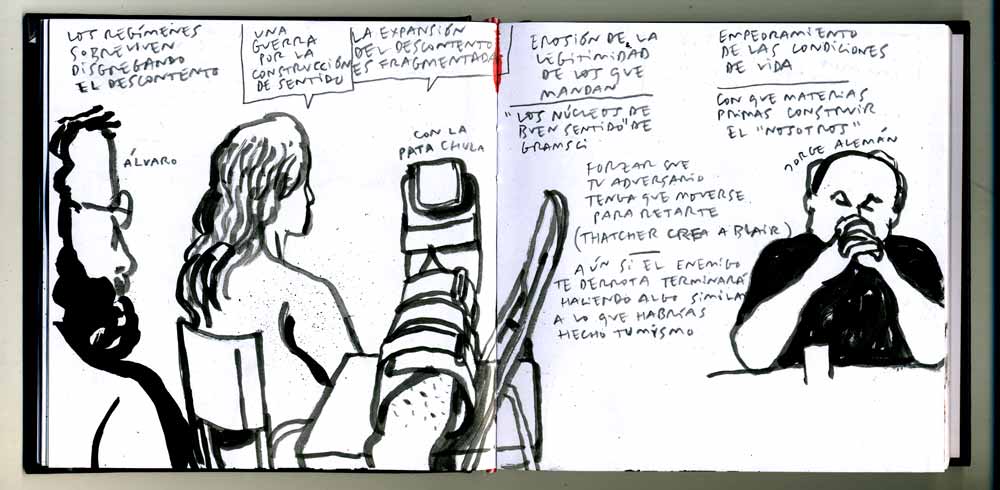 LOS REGÍMENES
SOBREVIVEN
DISGREGANDO
EL DESCONTENTO
UNA
GUERRA
POR LA
CONSTRUCCIÓN
DE SENTIDO
LA EXPANSIÓN
DEL DESCONTENTO
ES FRAGMENTADA
ÁLVARO
CON LA
PATA CHULA
EROSIÓN DE LA
LEGITIMIDAD
DE LOS QUE
MANDAN
"LOS NÚCLEOS DE
BUEN SENTIDO" DE
GRAMSCI
FORZAR QUE
TU ADVERSARIO
TENGA QUE MOVERSE
PARA RETARTE
(THATCHER CREA A BLAIR)
AÚN SI EL ENEMIGO
TE DERROTA TERMINARÁ
HACIENDO ALGO SIMILA
A LO QUE HABRÍAS
HECHO TU MISMO
EMPEORAMIENTO
DE LAS CONDICIONES
DE VIDA
CON QUE MATERIAS
PRIMAS CONSTRUIR
EL "NOSOTROS"
JORGE ALEMÁN